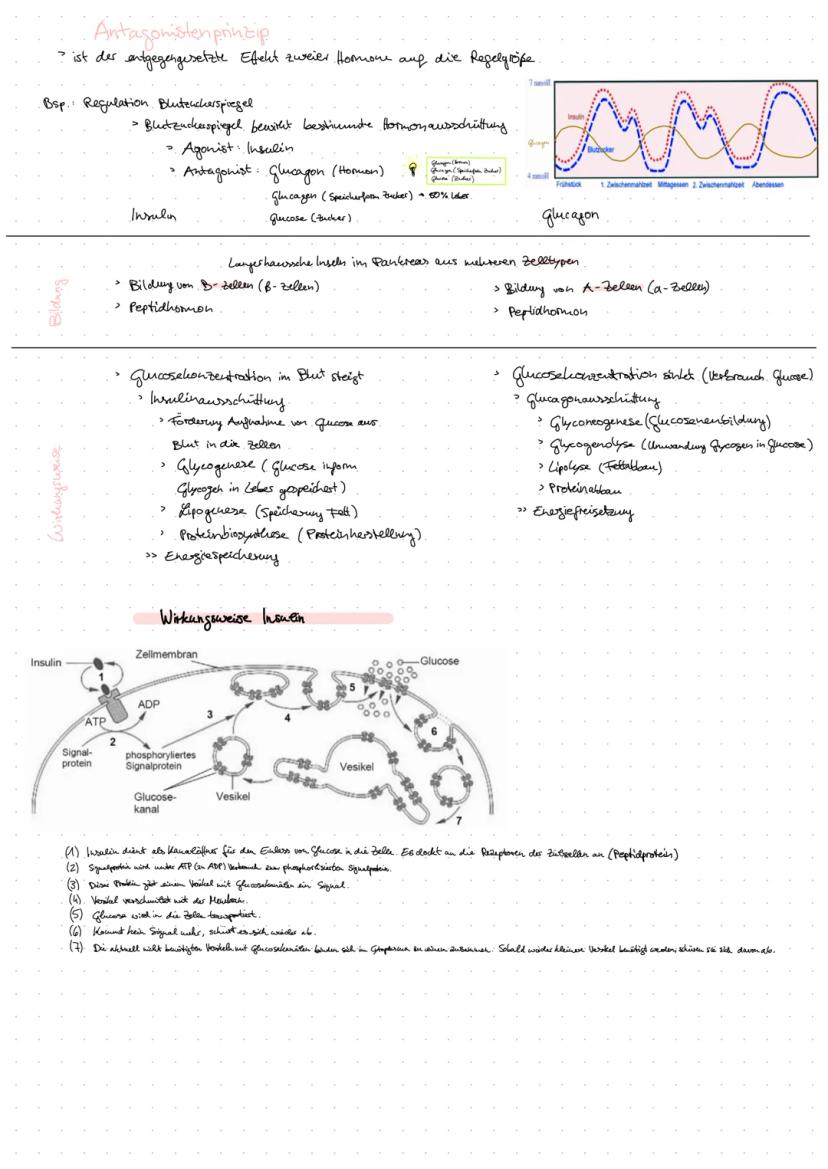 Antagonistenprinzip
> ist der entgegengesetzte Effekt zweier Hormone auf die Regelgröße
Bsp.: Regulation Blutzuckerspiegel
> Blutzuckerspiegel bewirkt bestimmte Hormonausschüttung
> Agonist: Insulin
> Antagonist: Glucagon (Hormon)
Glucagon (Hormon)
Glucogen (Speicherform Zucker)
Glucose (Zucker)
Glucagen (Speicherform Zucker) → 60% Leber
Glucose (Zucker)
7 mmol/l
Insulin
Glucagon
Blutzucker
4 mmol/l
Frühstück 1. Zwischenmahlzeit Mittagessen 2. Zwischenmahlzeit Abendessen
Insulin
Glucagon
Langerhanssche Inseln im Pankreas aus mehreren Zelltypen
Bildung
> Bildung von B-Zellen (β-Zellen)
> Peptidhormon
> Bildung von A-Zellen (α-Zellen)
> Peptidhormon
Wirkungsweise
> Glucosekonzentration im Blut steigt
> Insulinausschüttung
> Förderung Aufnahme von Glucose aus
Blut in die Zellen
> Glycogenese (Glucose inform
Glycogen in Leber gespeichert)
> Lipogenese (Speicherung Fett)
> Proteinbiosynthese (Proteinherstellung)
>> Energiespeicherung
> Glucosekonzentration sinkt (Verbrauch Glucose)
> Glucagonausschüttung
> Glyconeogenese (Glucoseneubildung)
> Glycogenolyse (Umwandlung Glycogen in Glucose)
> Lipolyse (Fettabbau)
> Proteinabbau
>> Energiefreisetzung
Wirkungsweise Insulin
Insulin
Zellmembran
Glucose
1
ADP
ATP
2
3
4
5
6
7
Signal-
protein
phosphoryliertes
Signalprotein
Glucose-
kanal
Vesikel
Vesikel
(1) Insulin dient als Kanalöffner für den Einlass von Glucose in die Zelle. Es dockt an die Rezeptoren der Zielzellen an (Peptidprotein)
(2) Signalprotein wird unter ATP (zu ADP) Verbrauch zum phosphorilisierten Signalprotein.
(3) Dieses Protein gibt einem Vesikel mit Glucosekanälen ein Signal.
(4) Vesikel verschmilzt mit der Membran.
(5) Glucose wird in die Zelle transportiert.
(6) Kommt kein Signal mehr, schnürt es sich wieder ab.
(7) Die aktuell nicht benötigten Vesikel mit Glucosekanälen binden sich im Cytoplasma zu einem zusammen. Sobald wieder kleinere Vesikel benötigt werden, schnüren sie sich davon ab.